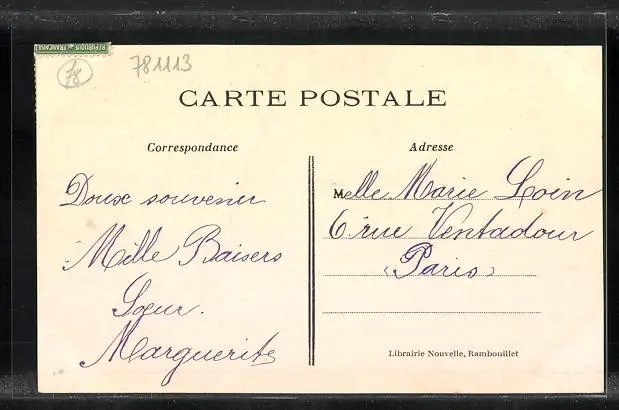 REPUBLIQUE FRANÇAISE
78
781113
CARTE POSTALE
Correspondance
Doux souvenir
Mille Baisers
Sœur.
Marguerite
Adresse
Melle Marie Loin
6 rue Ventadour
Paris
Librairie Nouvelle, Rambouillet